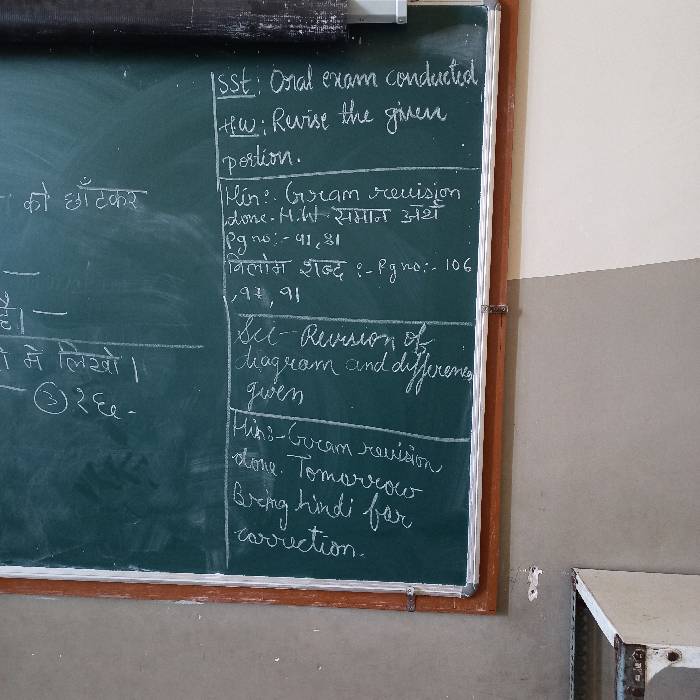 को छाँटकर
है।
में लिखो।
③ २६८-
SSt: Oral exam conducted
H.W: Revise the given
portion.
Hin:- Gram revision
done. H.W समान अर्थ
Pg no:- 91, 81
विलोम शब्द :- Pg no:- 106
91
Sci- Revision of
diagram and difference
given
Hin:- Gram revision
done. Tomorrow
Bring hindi for
correction.